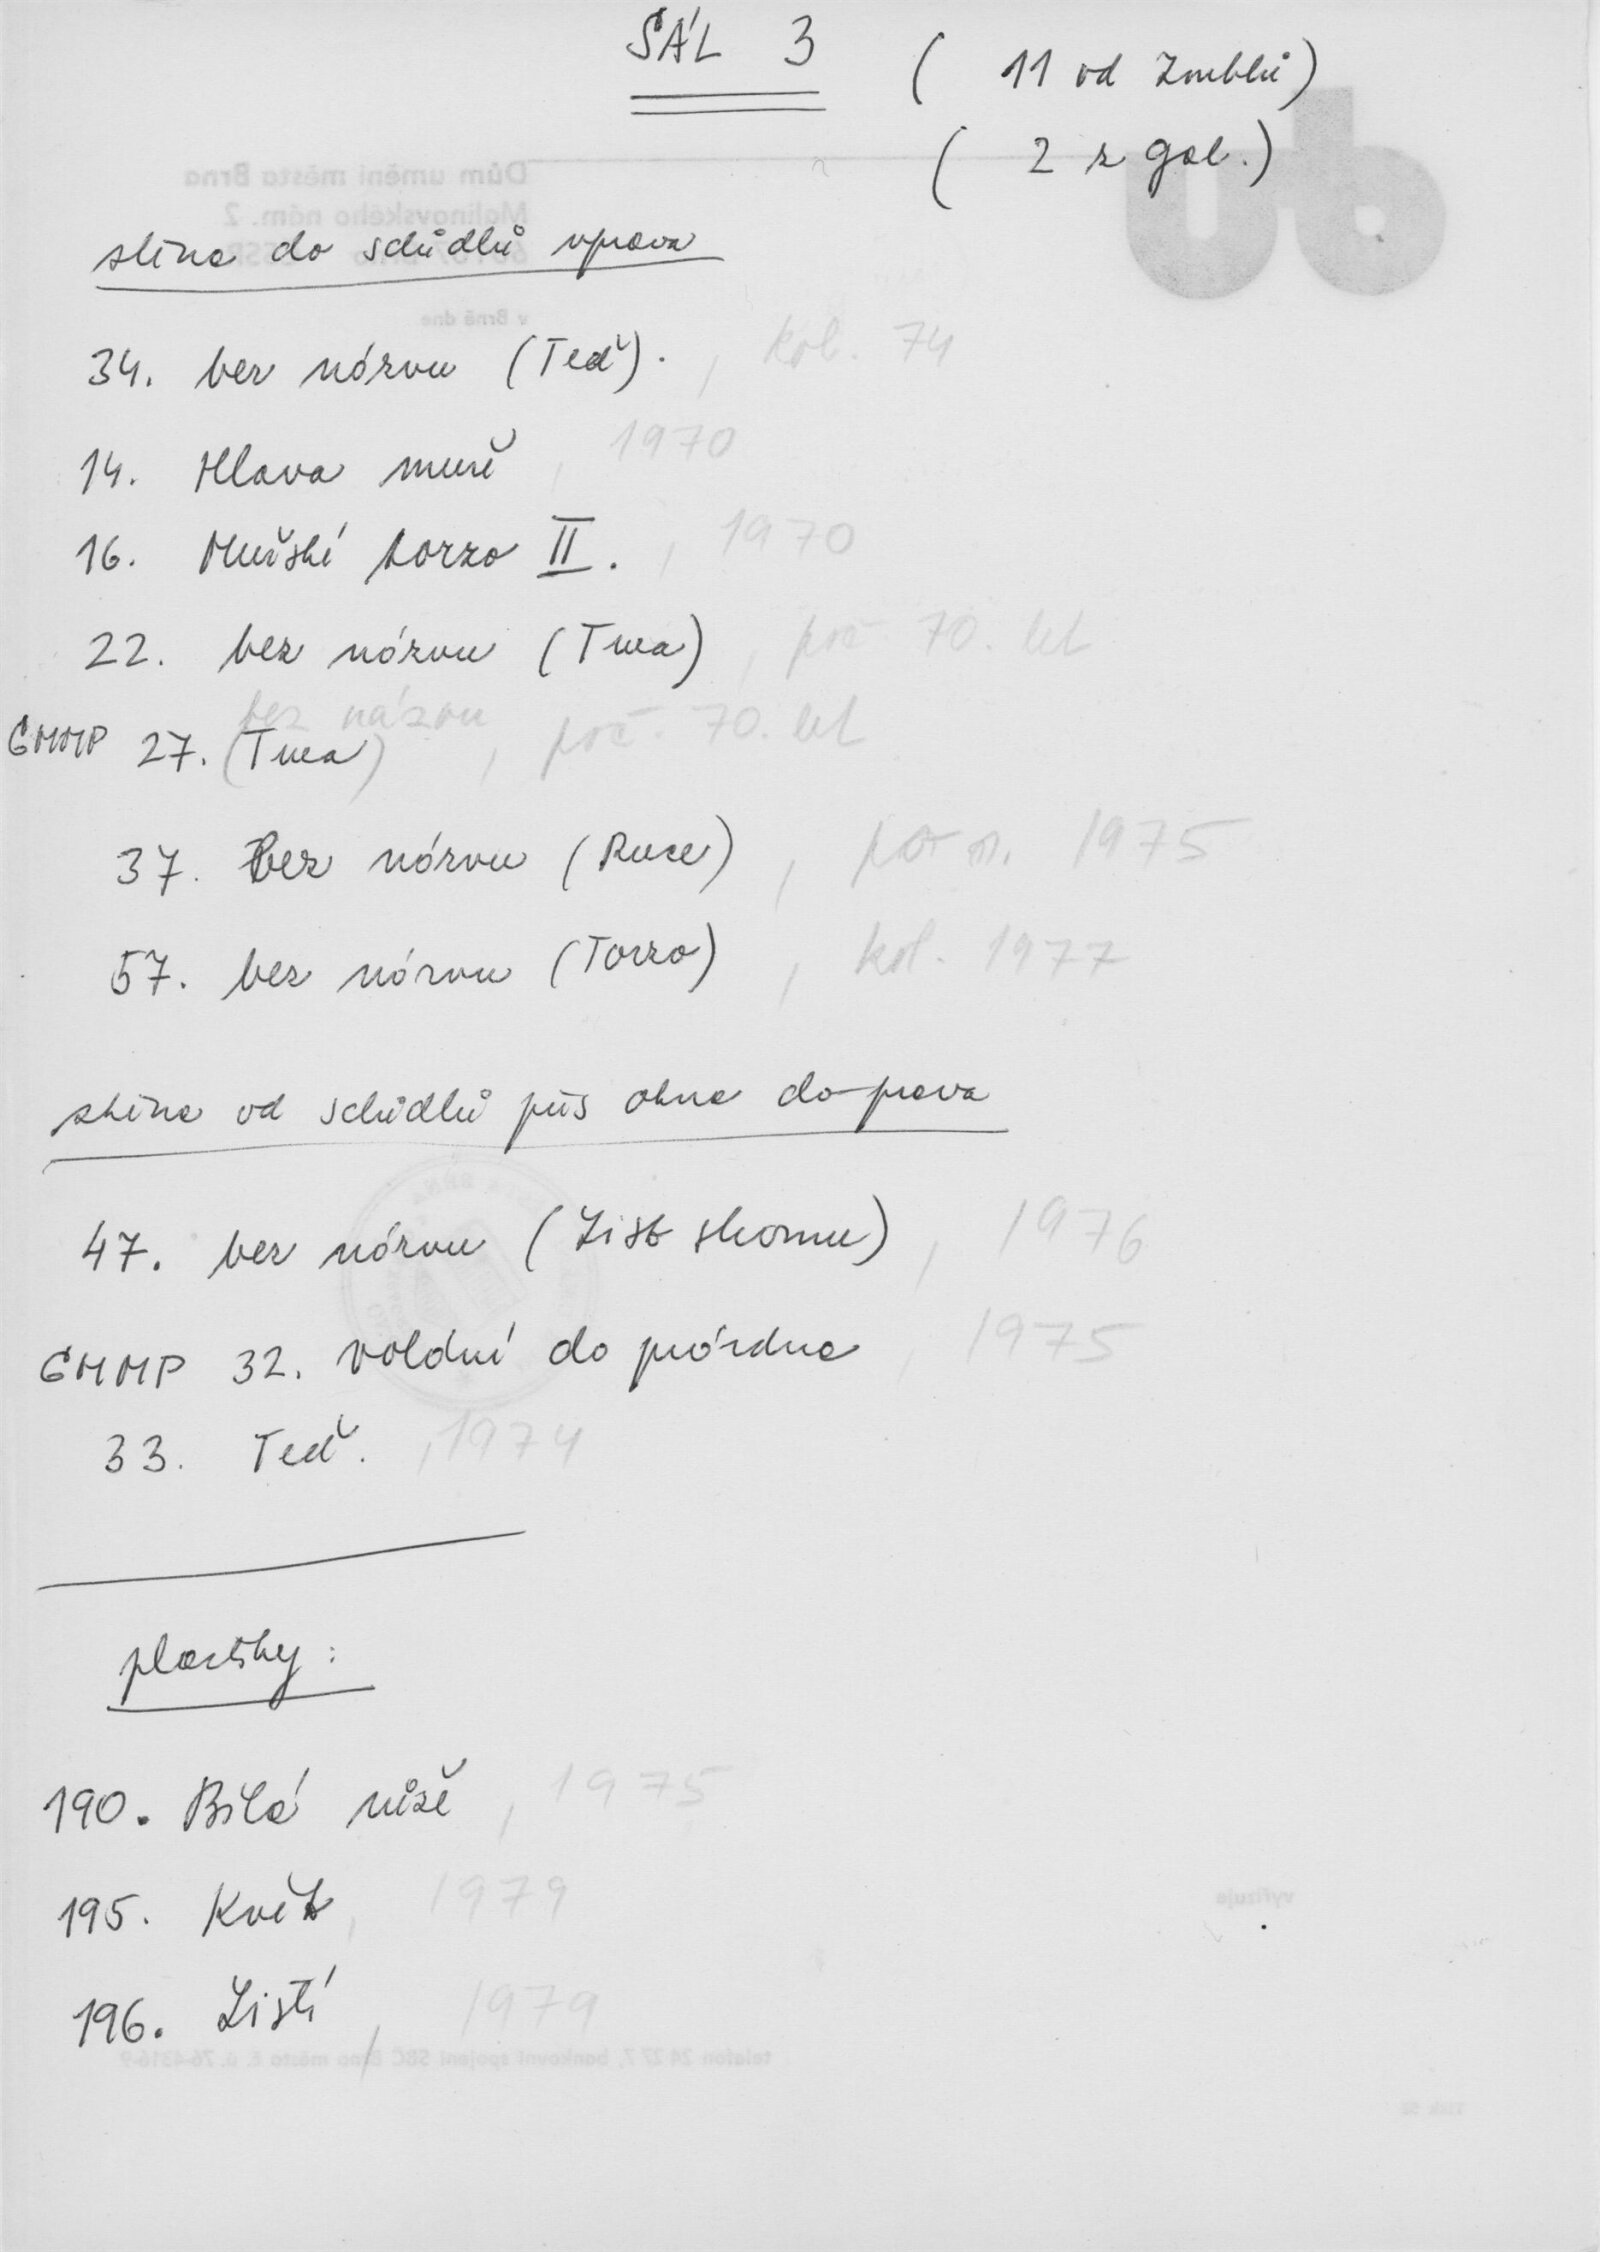 SÁL 3 ( 11 od Zmblů)
( 2 z gal.)
Dům umění města Brna
Malinovského nám. 2
stěna do schůdků vprava
v Brně dne
34. bez názvu (Teď). , kol. 74
14. Hlava muže , 1970
16. Mužské torzo II. , 1970
22. bez názvu (Tvea) , poč. 70. let
bez názvu
GMMP 27. (Tvea) , poč. 70. let
37. Bez názvu (Ruce) , 1975
57. bez názvu (Torzo) , kol. 1977
stěna od schůdků přes okna doprava
47. bez názvu (List stromu) , 1976
GMMP 32. volání do prázdna , 1975
33. Teď. , 1974
plastiky :
190. Bílá růže , 1975
195. Květ , 1979
vyřizuje
196. Listí , 1979
telefon 24 27 7, bankovní spojení SBČ Brno město č. ú. 76-4316-9